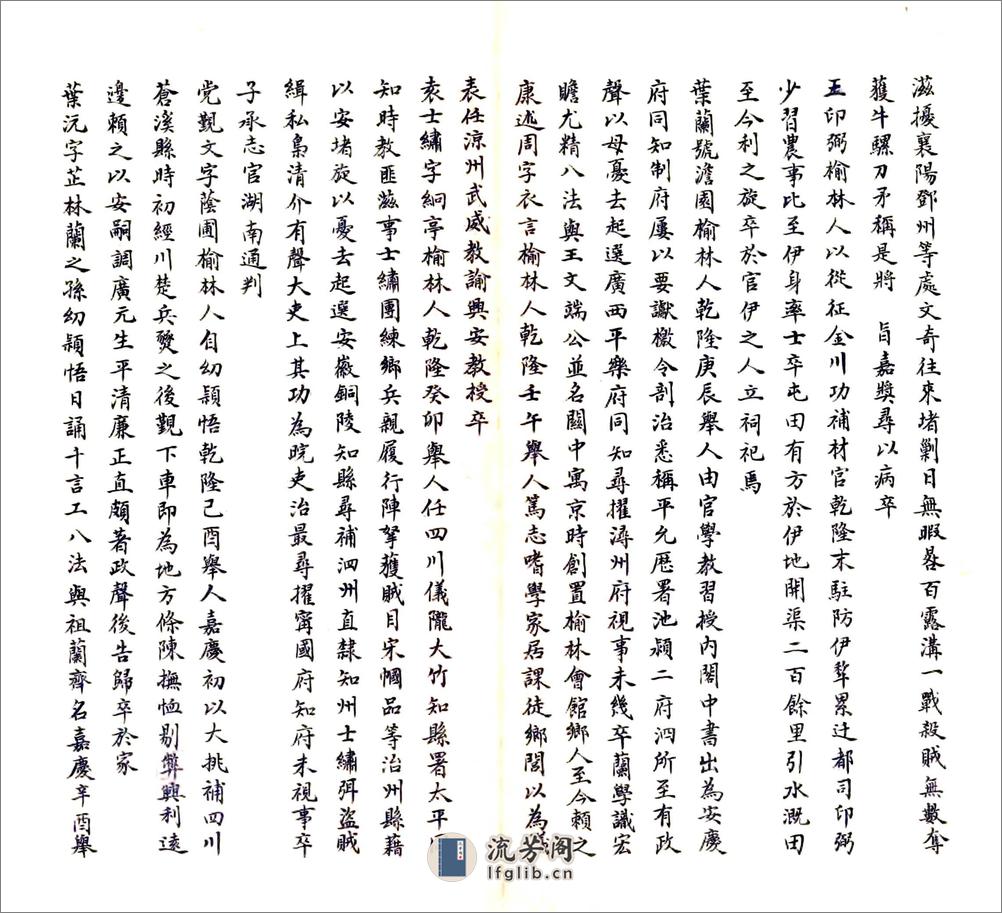 滋擾襄陽鄧州等處文奇往來堵剿日無暇晷百露溝一戰殺賊無數奪
獲牛騾刀矛稱是將　旨嘉獎尋以病卒
王印弼榆林人以從征金川功補材官乾隆末駐防伊犂累迁都司印弼
少習農事比至伊身率士卒屯田有方於伊地開渠二百餘里引水溉田
至今利之旋卒於官伊之人立祠祀焉
葉蘭號澹園榆林人乾隆庚辰舉人由官學教習授內閣中書出為安慶
府同知制府屢以要讞檄令剖治悉稱平允歷署池潁二府泗所至有政
聲以母憂去起選廣西平樂府同知尋擢潯州府視事未幾卒蘭學識宏
瞻尤精八法與王文端公並名關中寓京時創置榆林會館鄉人至今賴之
康述周字衣言榆林人乾隆壬午舉人篤志嗜學家居課徒鄉閭以為
表任涼州武威教諭興安教授卒
袁士繡字絅亭榆林人乾隆癸卯舉人任四川儀隴大竹知縣署太平
知時教匪滋事士繡團練鄉兵親履行陣拏獲賊目宋幗品等治州縣藉
以安堵旋以憂去起選安徽銅陵知縣尋補泗州直隸知州士繡弭盜賊
緝私梟清介有聲大吏上其功為皖吏治最尋擢甯國府知府未視事卒
子承志官湖南通判
党觀文字蔭圃榆林人自幼穎悟乾隆己酉舉人嘉慶初以大挑補四川
蒼溪縣時初經川楚兵燹之後觀下車即為地方條陳撫恤剔弊興利遠
邊賴之以安嗣調廣元生平清廉正直頗著政聲後告歸卒於家
葉沅字芷林蘭之孫幼穎悟日誦千言工八法與祖蘭齊名嘉慶辛酉舉
流芳阁
lfglib.cn